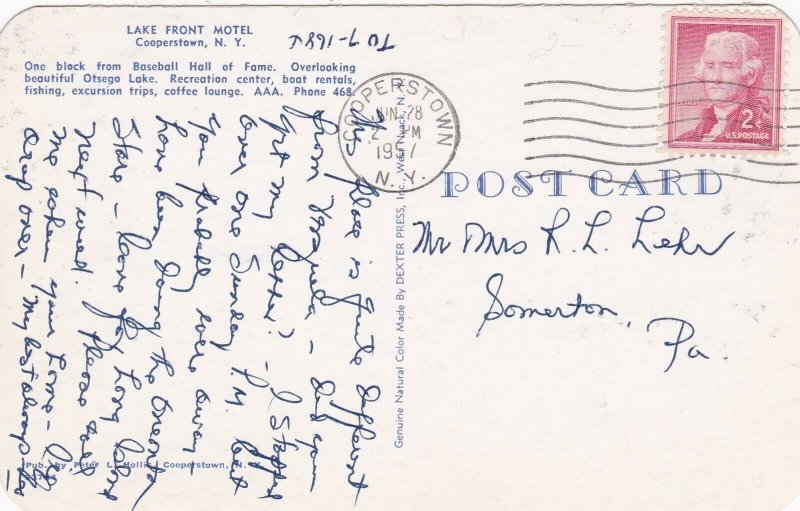 LAKE FRONT MOTEL
Cooperstown, N. Y.
One block from Baseball Hall of Fame. Overlooking
beautiful Otsego Lake. Recreation center, boat rentals,
fishing, excursion trips, coffee lounge. AAA. Phone 468.
TO 7-1681
COOPERSTOWN
JUN 28
2 PM
1957
N. Y.
2¢
U.S. POSTAGE
POST CARD
Mr Mrs R. L. Lehr
Somerton,
Pa.
This place is quite different
from - Did you
get my letter? - I stopped
over one Sunday P.M. but
you probably were away -
Have been doing the
State - leave for Long Island
next week. Please call
me when you come -
drop over - My best always
Genuine Natural Color Made By DEXTER PRESS, Inc., West Nyack, N.Y.
Pub. by Peter L. Hollis, Cooperstown, N. Y.